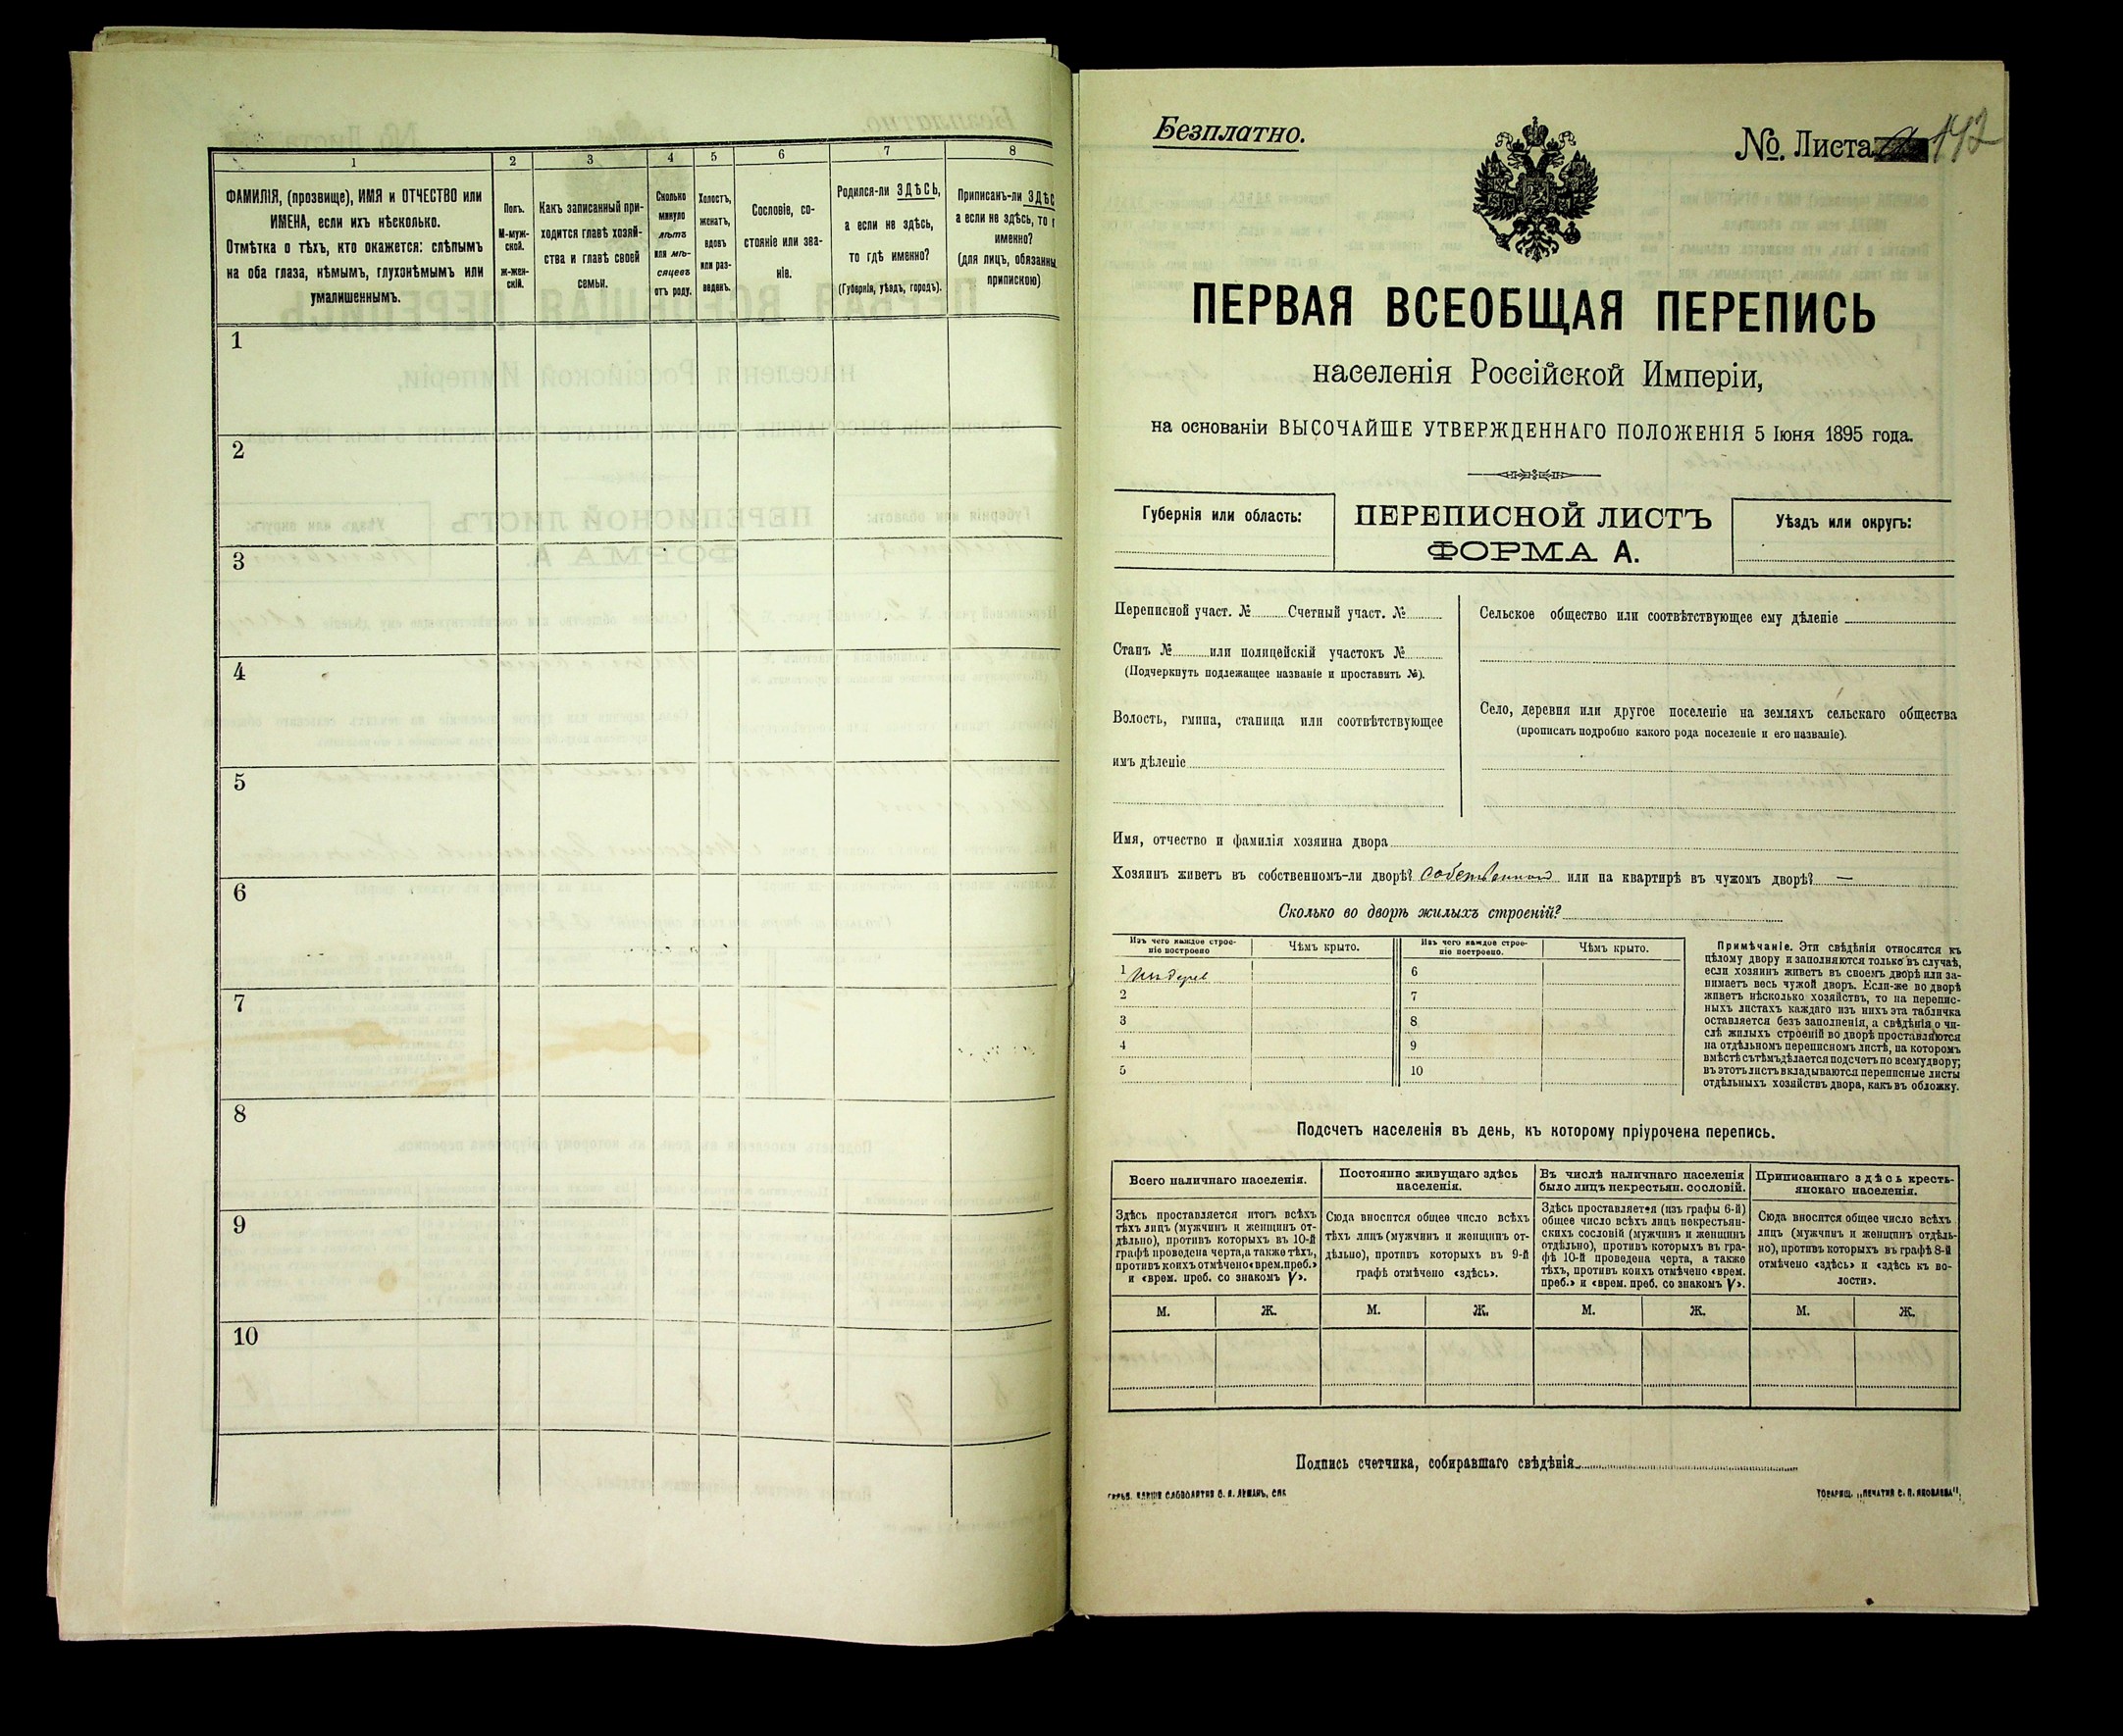 1
2
3
4
5
6
7
8
ФАМИЛІЯ, (прозвище), ИМЯ и ОТЧЕСТВО или
ИМЕНА, если ихъ нѣсколько.
Отмѣтка о тѣхъ, кто окажется: слѣпымъ
на оба глаза, нѣмымъ, глухонѣмымъ или
умалишеннымъ.
Полъ.
М-муж-
ской.
ж-жен-
скій.
Какъ записанный при-
ходится главѣ хозяй-
ства и главѣ своей
семьи.
Сколько
минуло
лѣтъ
или мѣ-
сяцевъ
отъ роду.
Холостъ,
женатъ,
вдовъ
или раз-
веденъ.
Сословіе, со-
стояніе или зва-
ніе.
Родился-ли ЗДѢСЬ,
а если не здѣсь,
то гдѣ именно?
(Губернія, уѣздъ, городъ).
Приписанъ-ли ЗДѢС
а если не здѣсь, то г
именно?
(для лицъ, обязанны
припискою)
1
2
3
4
5
6
7
8
9
10
Безплатно.
№ Листа 142
ПЕРВАЯ ВСЕОБЩАЯ ПЕРЕПИСЬ
населенія Россійской Имперіи,
на основаніи ВЫСОЧАЙШЕ УТВЕРЖДЕННАГО ПОЛОЖЕНІЯ 5 Іюня 1895 года.
Губернія или область:
ПЕРЕПИСНОЙ ЛИСТЪ
ФОРМА А.
Уѣздъ или округъ:
Переписной участ. № Счетный участ. №
Станъ № или полицейскій участокъ №
(Подчеркнуть подлежащее названіе и проставить №).
Волость, гмина, станица или соотвѣтствующее
имъ дѣленіе
Сельское общество или соотвѣтствующее ему дѣленіе
Село, деревня или другое поселеніе на земляхъ сельскаго общества
(прописать подробно какого рода поселеніе и его названіе).
Имя, отчество и фамилія хозяина двора
Хозяинъ живетъ въ собственномъ-ли дворѣ? собственном или на квартирѣ въ чужомъ дворѣ? —
Сколько во дворѣ жилыхъ строеній?
Изъ чего каждое строе-
ніе построено
Чѣмъ крыто.
Изъ чего каждое строе-
ніе построено.
Чѣмъ крыто.
1 изъ дерев
2
3
4
5
6
7
8
9
10
Примѣчаніе. Эти свѣдѣнія относятся къ
цѣлому двору и заполняются только въ случаѣ,
если хозяинъ живетъ въ своемъ дворѣ или за-
нимаетъ весь чужой дворъ. Если-же во дворѣ
живетъ нѣсколько хозяйствъ, то на перепис-
ныхъ листахъ каждаго изъ нихъ эта табличка
оставляется безъ заполненія, а свѣдѣнія о чи-
слѣ жилыхъ строеній во дворѣ проставляются
на отдѣльномъ переписномъ листѣ, на которомъ
вмѣстѣ съ тѣмъ дѣлается подсчетъ по всему двору;
въ этотъ листъ вкладываются переписные листы
отдѣльныхъ хозяйствъ двора, какъ въ обложку.
Подсчетъ населенія въ день, къ которому пріурочена перепись.
Всего наличнаго населенія.
Постоянно живущаго здѣсь
населенія.
Въ числѣ наличнаго населенія
было лицъ некрестьян. сословій.
Приписаннаго здѣсь кресть-
янскаго населенія.
Здѣсь проставляется итогъ всѣхъ
тѣхъ лицъ (мужчинъ и женщинъ от-
дѣльно), противъ которыхъ въ 10-й
графѣ проведена черта, а также тѣхъ,
противъ коихъ отмѣчено «врем. преб.»
и «врем. преб. со знакомъ V».
Сюда вносится общее число всѣхъ
тѣхъ лицъ (мужчинъ и женщинъ от-
дѣльно), противъ которыхъ въ 9-й
графѣ отмѣчено «здѣсь».
Здѣсь проставляется (изъ графы 6-й)
общее число всѣхъ лицъ некрестьян-
скихъ сословій (мужчинъ и женщинъ
отдѣльно), противъ которыхъ въ гра-
фѣ 10-й проведена черта, а также
тѣхъ, противъ коихъ отмѣчено «врем.
преб.» и «врем. преб. со знакомъ V».
Сюда вносится общее число всѣхъ
лицъ (мужчинъ и женщинъ отдѣль-
но), противъ которыхъ въ графѣ 8-й
отмѣчено «здѣсь» и «здѣсь къ во-
лости».
М.
Ж.
М.
Ж.
М.
Ж.
М.
Ж.
Подпись счетчика, собиравшаго свѣдѣнія
СЛОВОЛИТНЯ О. И. ЛЕМАНЪ, СПБ
ТОВАРИЩ. „ПЕЧАТНЯ С. П. ЯКОВЛЕВА".